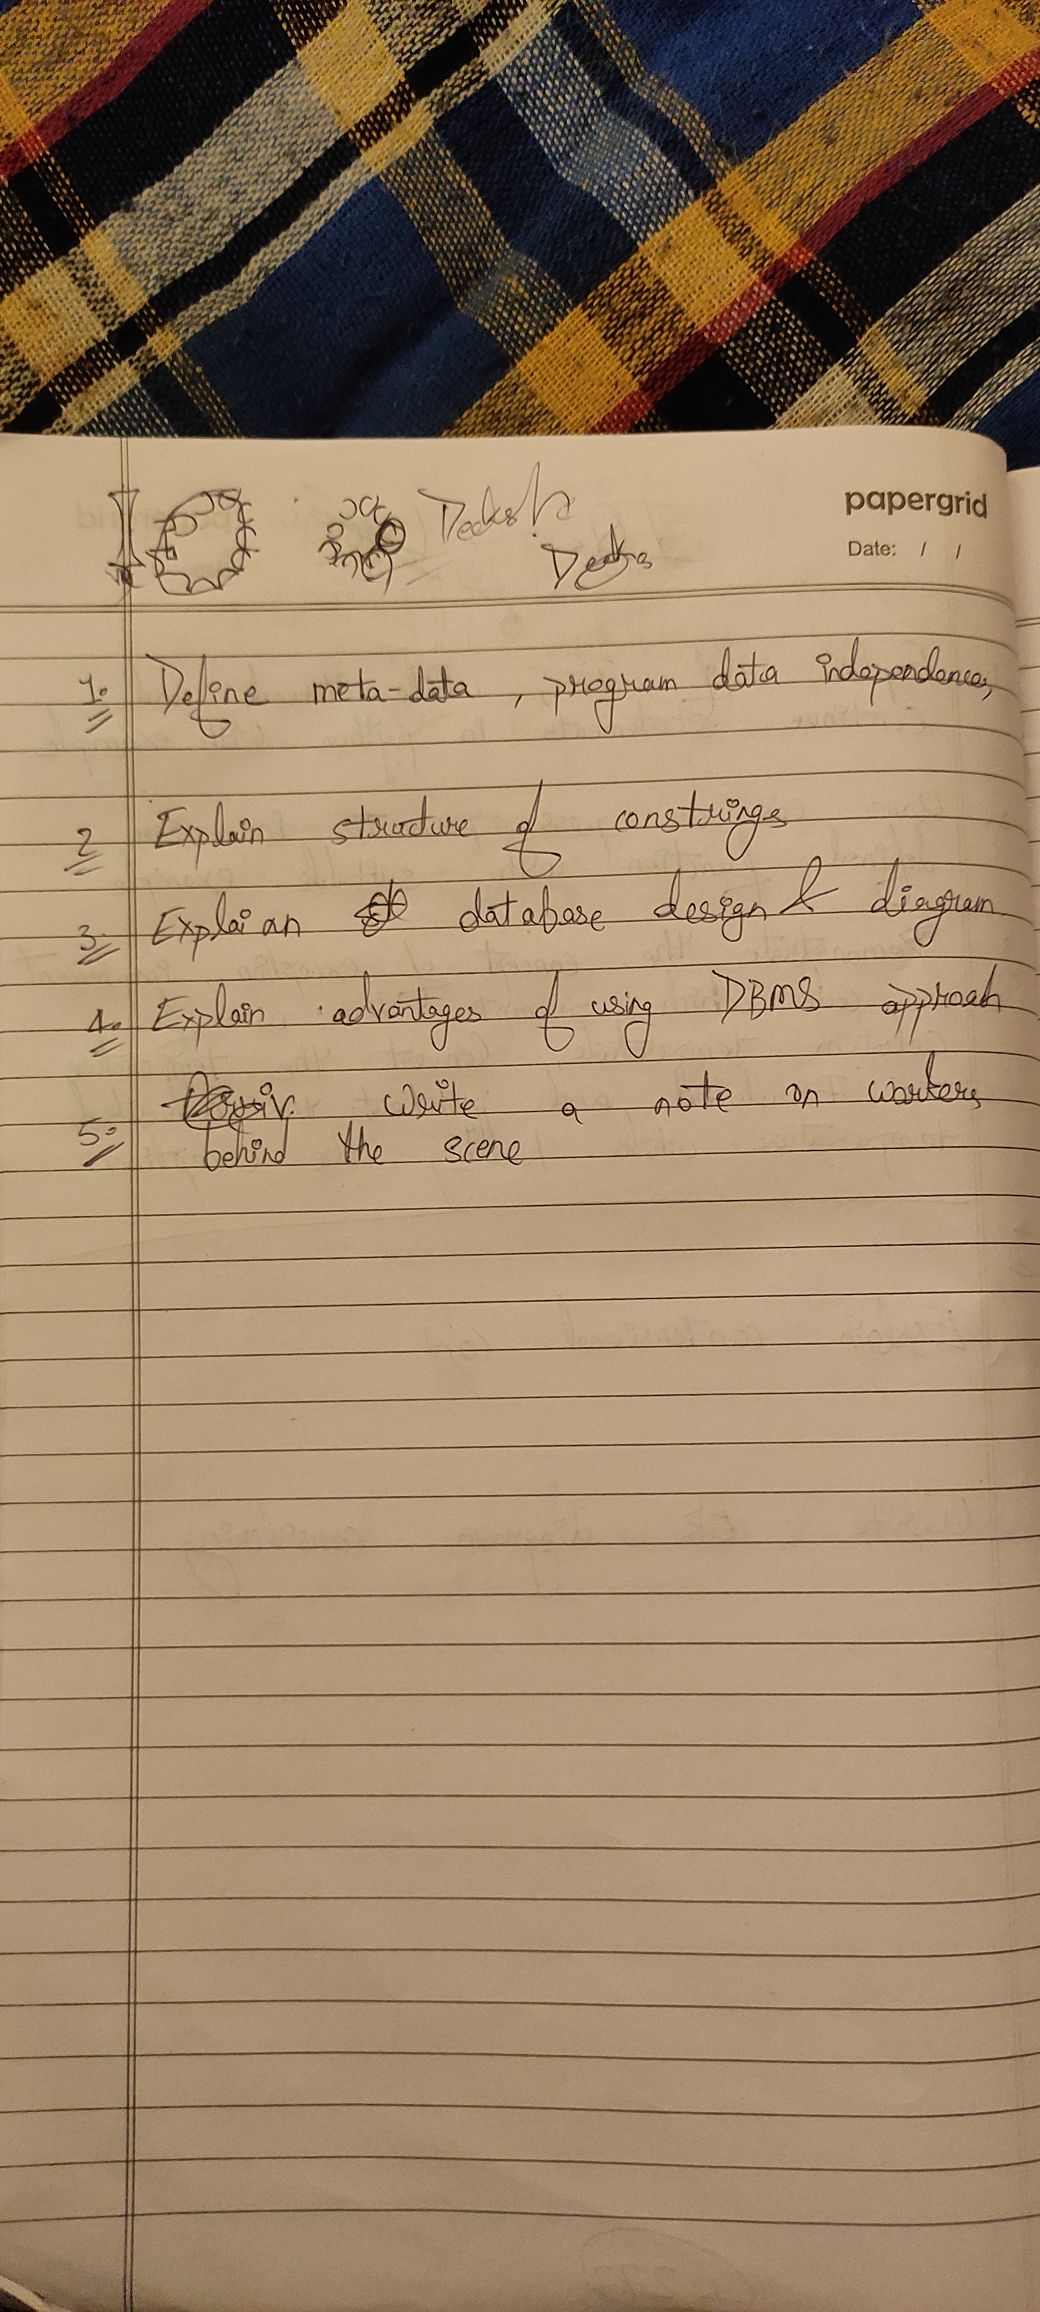 papergrid
Date: / /
1. Define meta-data, program data independence,
2 Explain structure of constrings
3. Explaian database design & diagram
4. Explain advantages of using DBMS approah
5. write a note on workers
behind the scene